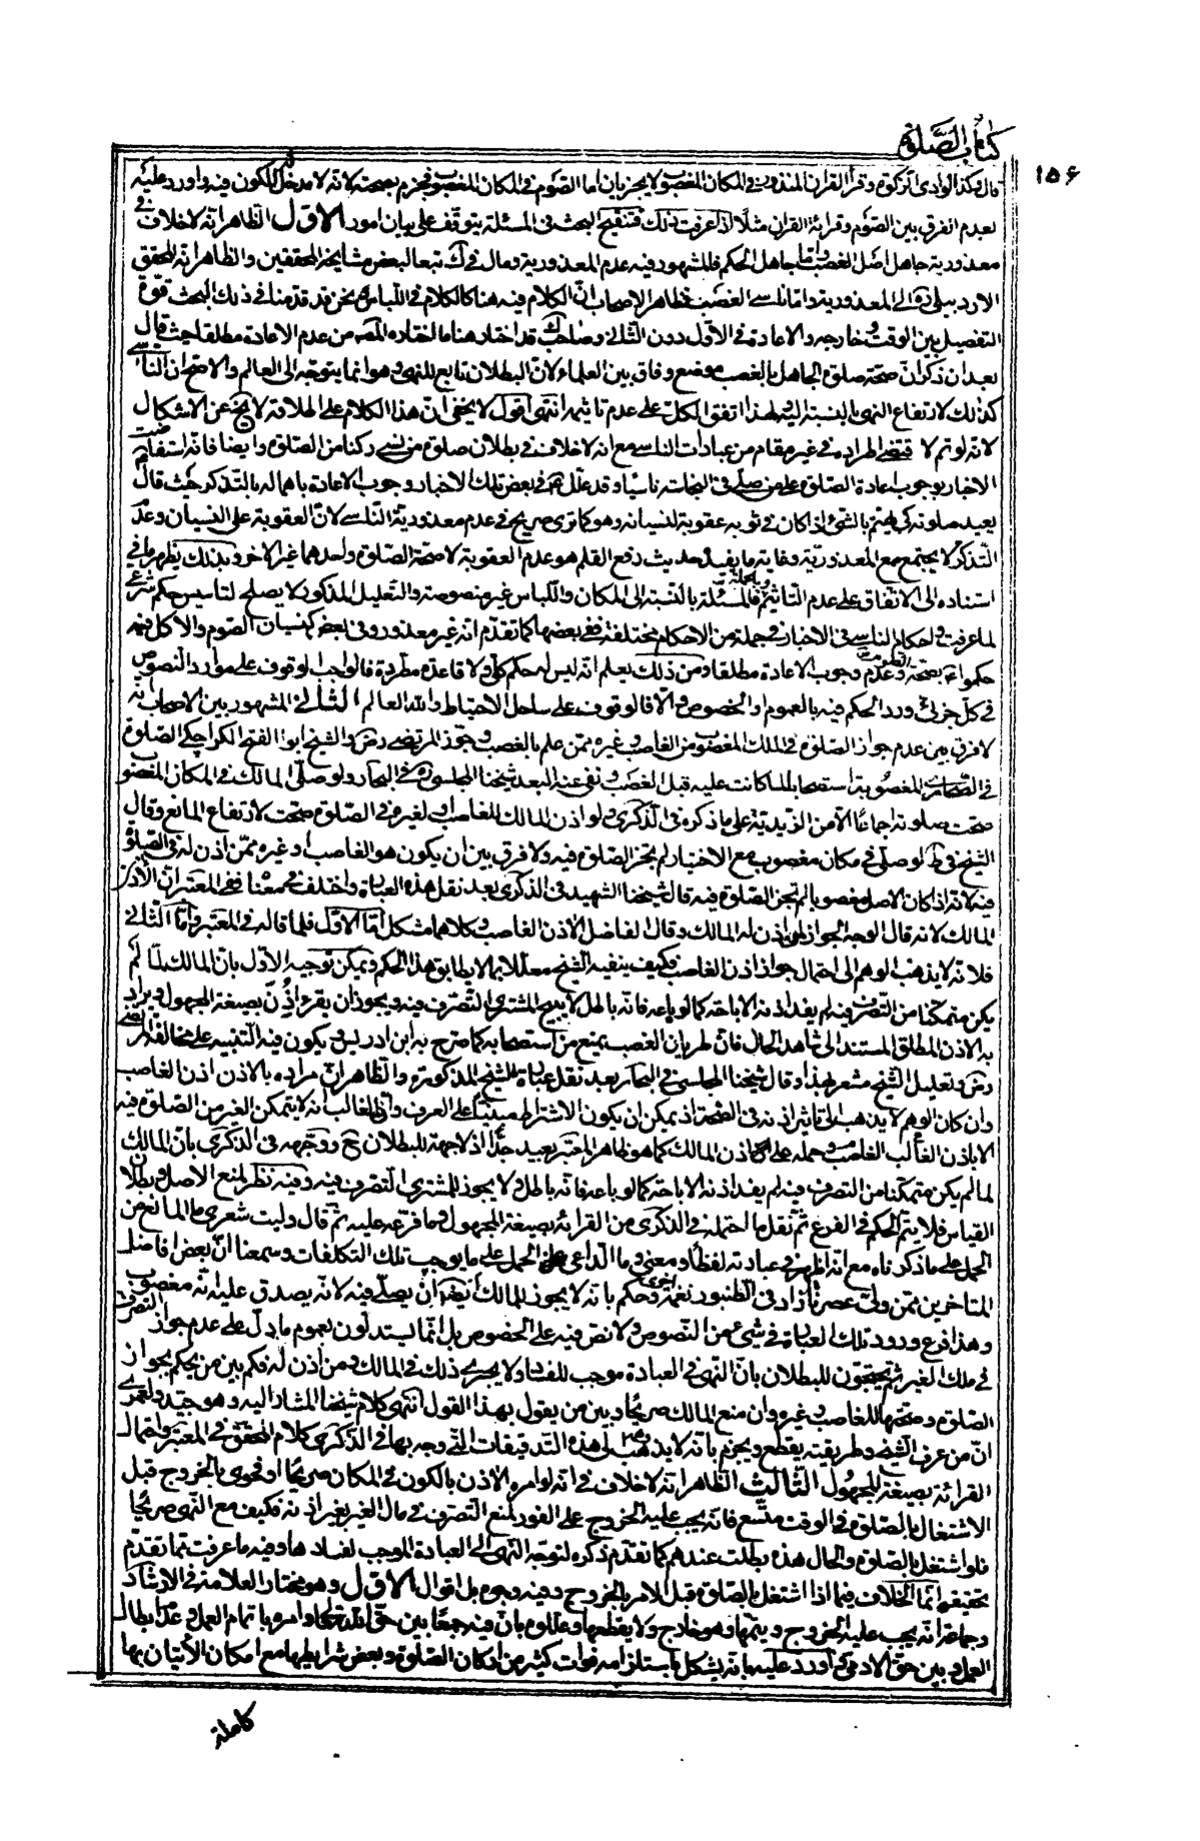 كتاب الصلوة
١٥۶
قال وكذا لو ادى الزكوة وقرأ القران المنذور في المكان المغصوب لا يجزيان اما الصوم في المكان المغصوب فجزم بصحته لانه لا مدخل للكون فيه واورد عليه
بعدم الفرق بين الصوم وقرائة القران مثلا اذا عرفت ذلك فتنقيح البحث في المسئلة يتوقف على بيان امور الاول الظاهر انه لا خلاف في
معذورية جاهل اصل الغصب واما جاهل الحكم فالمشهور فيه عدم المعذورية ومال في ك تبعا لبعض مشايخه المحققين والظاهر انه المحقق
الاردبيلي ره الى المعذورية واما ناسي الغصب فظاهر الاصحاب ان الكلام فيه هنا كالكلام في اللباس ونحن قد قدمنا في ذلك البحث قوة
التفصيل بين الوقت وخارجه والاعادة في الاول دون الثاني وصاحب ك قد اختار هنا ما اختاره المصـ من عدم الاعادة مطلقا حيث قال
بعد ان ذكر ان صحة صلوة الجاهل بالغصب موضع وفاق بين العلماء لان البطلان تابع للنهى وهو انما يتوجه الى العالم والاصح ان الناسي
كذلك لارتفاع النهى بالنسبة اليه ولهذا اتفق الكل على عدم تاثيمه انتهى اقول لا يخفى ان هذا الكلام على اطلاقه لا يخ عن الاشكال
لانه لو تم لاقتضى اطراده في غير مقام من عبادات الناسي مع انه لا خلاف في بطلان صلوة من نسي ركنا من الصلوة وايضا فانه استفاضت
الاخبار بوجوب اعادة الصلوة على من صلى في النجاسة ناسيا وقد علل ع في بعض تلك الاخبار وجوب الاعادة باهماله بالتذكر حيث قال
يعيد صلوته كي يهتم بالشيء اذا كان في ثوبه عقوبة لنسيانه وهو كما ترى صريح في عدم معذورية الناسي لان العقوبة على النسيان وعدم
التذكر لا يجتمع مع المعذورية وغاية ما يفيد حديث رفع القلم هو عدم العقوبة لا صحة الصلوة واحدهما غير الاخر وبذلك يظهر ما في
استناده الى الاتفاق على عدم التاثيم وبالجملة فالمسئلة بالنسبة الى المكان واللباس غير منصوصة والتعليل المذكور لا يصلح لتاسيس حكم شرعي
لما عرفت في احكام الناسي في الاخبار في جملة من الاحكام مختلفة ففي بعضها كما تقدم انه غير معذور وفي بعض كنسيان الصوم والاكل فيه
حكموا ع بصحته وعدم وجوب الاعادة مطلقا ومن ذلك يعلم انه ليس له حكم كلي ولا قاعدة مطردة فالواجب الوقوف على موارد النصوص
في كل جزئي ورد الحكم فيه بالعموم او الخصوص والا فالوقوف على ساحل الاحتياط والله العالم الثاني المشهور بين الاصحاب انه
لا فرق بين عدم جواز الصلوة في الملك المغصوب من الغاصب وغيره ممن علم بالغصب وجوز المرتضى رض والشيخ ابو الفتح الكراجكي الصلوة
في الصحاري المغصوبة استصحابا لما كانت عليه قبل الغصب ونفى عنه البعد شيخنا المجلسي ره في البحار ولو صلى المالك في المكان المغصوب
صحت صلوته اجماعا الا من الزيدية على ما ذكره في الذكرى ولو اذن المالك للغاصب او لغيره في الصلوة صحت لارتفاع المانع وقال
الشيخ في ط لو صلى في مكان مغصوب مع الاختيار لم يجز الصلوة فيه ولا فرق بين ان يكون هو الغاصب او غيره ممن اذن له في الصلوة
فيه لانه اذا كان الاصل مغصوبا لم تجز الصلوة فيه قال شيخنا الشهيد في الذكرى بعد نقل هذه العبارة واختلف في معناه ففي المعتبر ان الاذن
المالك لانه قال الوجه الجواز لمن اذن له المالك وقال الفاضل الاذن الغاصب وكلاهما مشكل اما الاول فلما قاله في المعتبر واما الثاني
فلانه لا يذهب الوهم الى احتمال جواز اذن الغاصب فكيف ينفيه الشيخ معللا بما لا يطابق هذا الحكم ويمكن توجيه الاول بان المالك لما لم
يكن متمكنا من التصرف فيه لم يفد اذنه الاباحة كما لو باعه فانه باطل لا يبيح المشتري التصرف فيه ويجوز ان يقرء اذن بصيغة المجهول ويراد
به الاذن المطلق المستند الى شاهد الحال فان طريان الغصب يمنع من استصحابه كما صرح به ابن ادريس ويكون فيه التنبيه على مخالفة المرتضى
رض وتعليل الشيخ مشعر بهذا وقال شيخنا المجلسي في البحار بعد نقل عبارة الشيخ المذكورة والظاهر ان مراده بالاذن اذن الغاصب
وان كان الوهم لا يذهب الى تاثير اذنه في الصحة اذ يمكن ان يكون الاشتراط مبنيا على العرف وان الغالب انه لا يتمكن الغير من الصلوة فيه
الا باذن الغالب الغاصب وحمله على اذن المالك كما هو ظاهر المعتبر بعيد جدا اذ لا جهة للبطلان ح ووجهه في الذكرى بان المالك
لما لم يكن متمكنا من التصرف فيه لم يفد اذنه الاباحة كما لو باعه فانه باطل ولا يجوز للمشتري التصرف فيه وفيه نظر لمنع الاصل وبطلان
القياس فلا يتم الحكم في الفرع ثم نقل ما احتمله في الذكرى من القرائة بصيغة المجهول وما فرعه عليه ثم قال وليت شعري ما المانع من
الحمل على ما ذكرناه مع انه اظهر في عبارته لفظا ومعنى وما الداعي على الحمل على ما يوجب تلك التكلفات وسمعنا ان بعض افاضل
المتاخرين ممن ولي عصرنا زاد في الطنبور نغمة اخرى وحكم بانه لا يجوز للمالك ايضا ان يصلي فيه لانه يصدق عليه انه مغصوب
وهذا فرع ورود تلك العبارة في شيء من النصوص ولا نص فيه على الخصوص بل انما يستدلون بعموم ما دل على عدم جواز التصرف
في ملك الغير ثم يحتجون للبطلان بان النهى في العبادة موجب للفساد ولا يجري ذلك في المالك ومن اذن له فكم بين من يحكم بجواز
الصلوة وصحتها للغاصب وغيره وان منع المالك صريحا وبين من يقول بهذا القول انتهى كلام شيخنا المشار اليه وهو جيد ولعمري
ان من عرف الشيخ وطريقته يقطع ويجزم بانه لا يذهب الى هذه التدقيقات التي وجه بها في الذكرى كلام المحقق في المعتبر واحتمال
القرائة بصيغة المجهول الثالث الظاهر انه لا خلاف في انه لو امره الاذن بالكون في المكان صريحا او فحوى بالخروج قبل
الاشتغال بالصلوة في الوقت متسع فانه يجب عليه الخروج على الفور لمنع التصرف في مال الغير بغير اذنه فكيف مع النهى صريحا
فلو اشتغل بالصلوة والحال هذه بطلت عندهم كما تقدم ذكره لتوجه النهى الى العبادة الموجب لفسادها وفيه ما عرفت مما تقدم
تحقيقه انما الخلاف فيما اذا اشتغل بالصلوة قبل الامر بالخروج وفيه وجوه بل اقوال الاول وهو مختار العلامة في الارشاد
وجماعة انه يجب عليه الخروج ويتمها وهو خارج ولا يقطعها وعللوه بان فيه جمعا بين حق الله تعالى وامره باتمام العمل وعدم ابطال
العمل وبين حق الادمي واورد عليه بانه يشكل باستلزامه فوات كثير من اركان الصلوة وبعض شرايطها مع امكان الاتيان بها
كاملة